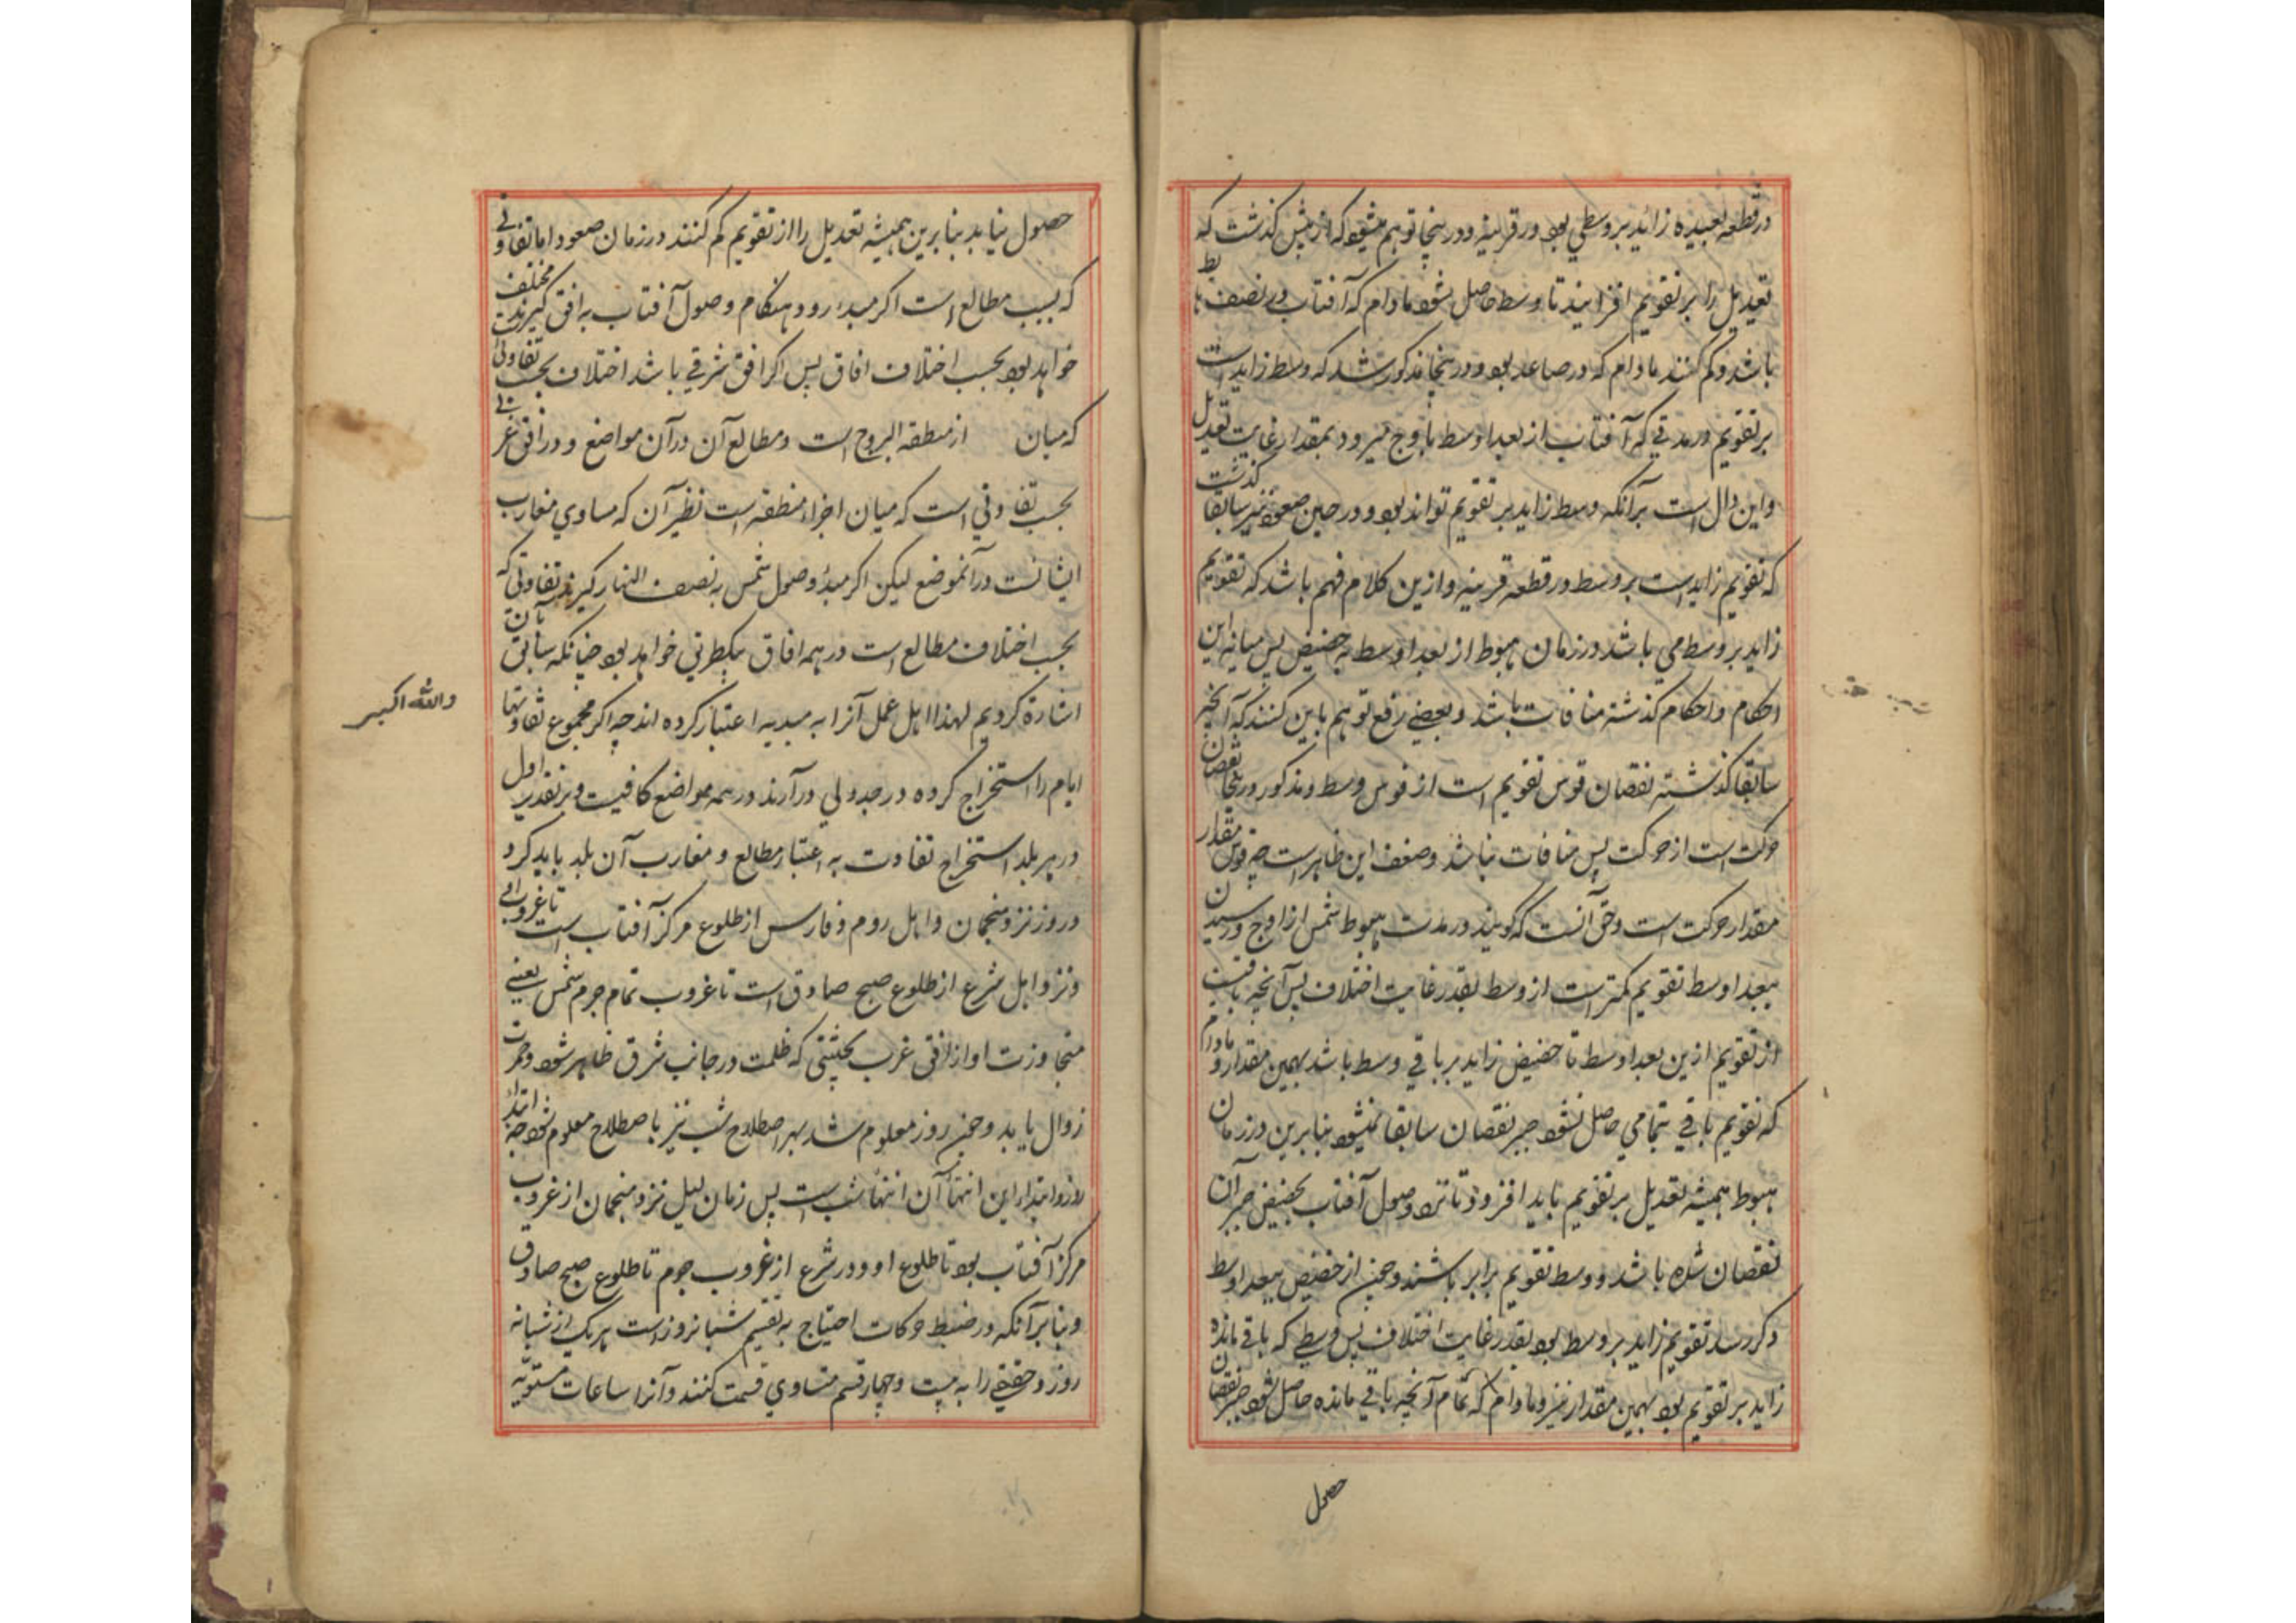 در قطعه بعیده زاید بر وسطی بود در قریبه و در ینجا توهم میشود که از پیش گذشت که
تعدیل را بر تقویم افزایند تا وسط حاصل شود مادام که آفتاب در نصف هابط
باشد و کم کنند مادام که در صاعد بود و در ینجا مذکور شد که وسط زاید است
بر تقویم در مدتی که آفتاب از بعد اوسط باوج میرود بمقدار غایت تعدیل
و این دال است بر آنکه وسط زاید بر تقویم تواند بود و در حین صعود نیز سابقا گذشت
که تقویم زاید است بر وسط در قطعه قریبه و ازین کلام فهم باشد که تقویم
زاید بر وسط می باشد در زمان هبوط از بعد اوسط به حضیض پس میانه این
احکام و احکام گذشته منافات باشد و بعضی رفع توهم باین کنند که آنچه
سابقا گذشته نقصان قوس تقویم است از قوس وسط و مذکور در ینجا نقصان
حرکت است از حرکت پس منافات نباشد و ضعف این ظاهر است چه قوس مقدار
مقدار حرکت است و حق آنست که گویند در مدت هبوط شمس از اوج و رسیدن
ببعد اوسط تقویم کمتر است از وسط بقدر غایت اختلاف پس آنچه باقیست
از تقویم ازین بعد اوسط تا حضیض زاید بر باقی وسط باشد بهمین مقدار و مادام
که تقویم باقی بتمامی حاصل نشود جبر نقصان سابقا نمیشود بنابرین در زمان
هبوط همیشه تعدیل بر تقویم باید افزود تا نزد وصول آفتاب بحضیض جبر آن
نقصان شده باشد و وسط تقویم برابر باشند و چون از حضیض ببعد اوسط
دکر رسد تقویم زاید بر وسط بود بقدر غایت اختلاف پس وسطی که باقی مانده
زاید بر تقویم بود بهمین مقدار نیز و مادام که تمام آنچه باقی مانده حاصل نشود جبر نقصان
حصول
حصول نیابد بنابرین همیشه تعدیل را از تقویم کم کنند در زمان صعود اما تفاوتی
که بسبب مطالع است اگر مبدء روز هنگام وصول آفتاب به افق گیرند مختلف
خواهد بود بحسب اختلاف افاق پس اگر افق شرقی باشد اختلاف بحسب تفاوتی است
که میان از منطقه البروج است و مطالع آن در آن مواضع و در افق غربی
بحسب تفاوتی است که میان اجزاء منطقه است نظیر آن که مساوی مغارب
ایشانست در آنموضع لیکن اگر مبدء وصول شمس به نصف النهار گیرند تفاوتی که
بحسب اختلاف مطالع است در همه افاق بیکطریق خواهد بود چنانکه سابق بآن
اشارة کردیم لهذا اهل عمل آنرا به مبدیه اعتبار کرده اند چه اگر مجموع تفاوتها
ایام را استخراج کرده در جدولی در آرند در همه مواضع کافیست و بر تقدیر اول
در هر بلد استخراج تفاوت به اعتبار مطالع و مغارب آن بلد باید کرد
و روز نزد منجمان و اهل روم و فارس از طلوع مرکز آفتاب است تا غروب او
و نزد اهل شرع از طلوع صبح صادق است تا غروب تمام جرم شمس یعنی
متجاوزت او از افق غرب بحیثیتی که ظلمت در جانب شرق ظاهر شود و حمرت
زوال یابد و چون روز معلوم شد بهر اصطلاح شب نیز با صطلاح معلوم شود چه ابتداء
روز و ابتداء این انتهاء آن انتهاء شب است پس زمان لیل نزد منجمان از غروب
مرکز آفتاب بود تا طلوع او و در شرع از غروب جرم تا طلوع صبح صادق
و بنابر آنکه در ضبط حرکات احتیاج به تقسیم شبانروز است هر یک از شبانه
روز و حقیقی را به بیست و چهار قسم متساوی قسمت کنند و آنرا ساعات مستویه
والله اکبر